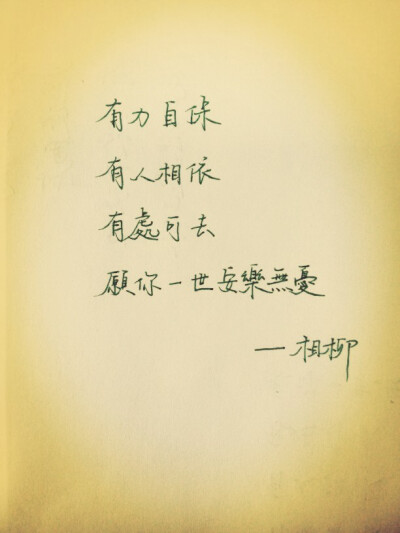 有力自保
有人相依
有處可去
願你一世安樂無憂
—相柳